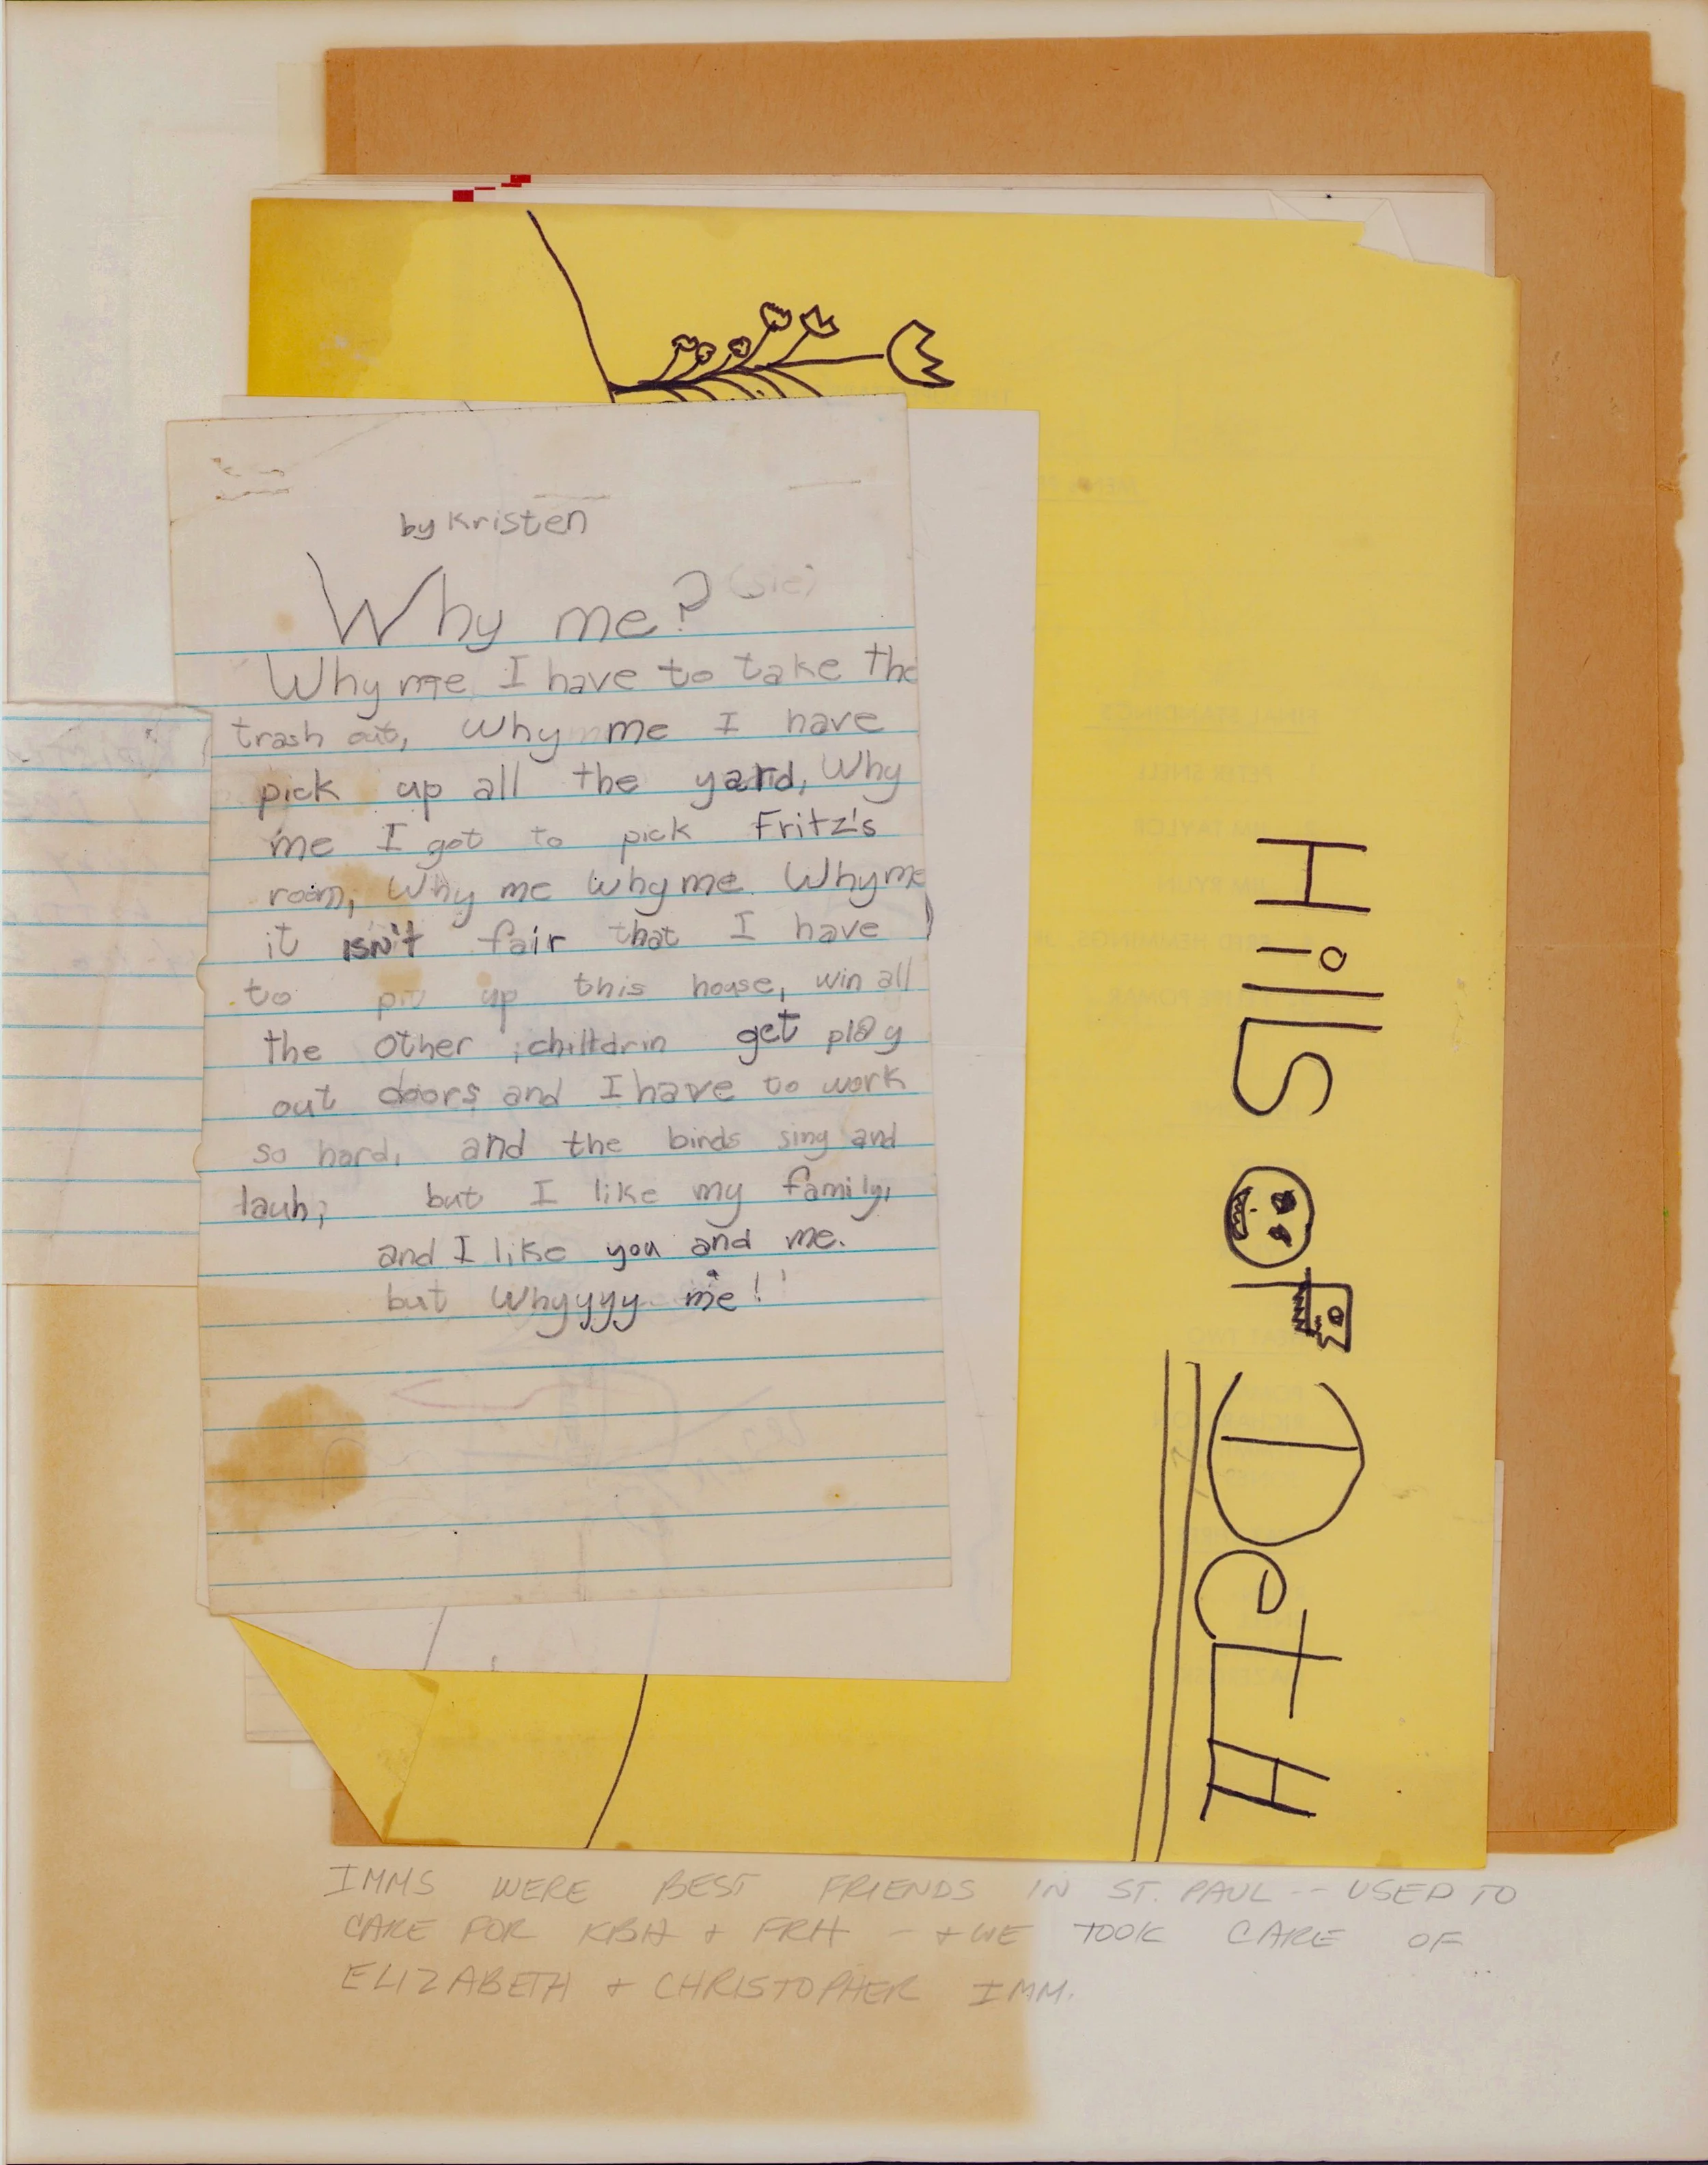 by Kristen
Why me? (sic)
Why me I have to take the
trash out, Why me I have
pick up all the yard, Why
me I got to pick Fritz's
room, Why me why me Why me
it isn't fair that I have
to up this house, win all
the other childrin get play
out doors and I have to work
so hard, and the birds sing and
lauh, but I like my family,
and I like you and me.
but Whyyyy me!
Hills of DetH
IMMS WERE BEST FRIENDS IN ST. PAUL -- USED TO
CARE FOR KBH + FRH - + WE TOOK CARE OF
ELIZABETH + CHRISTOPHER IMM.